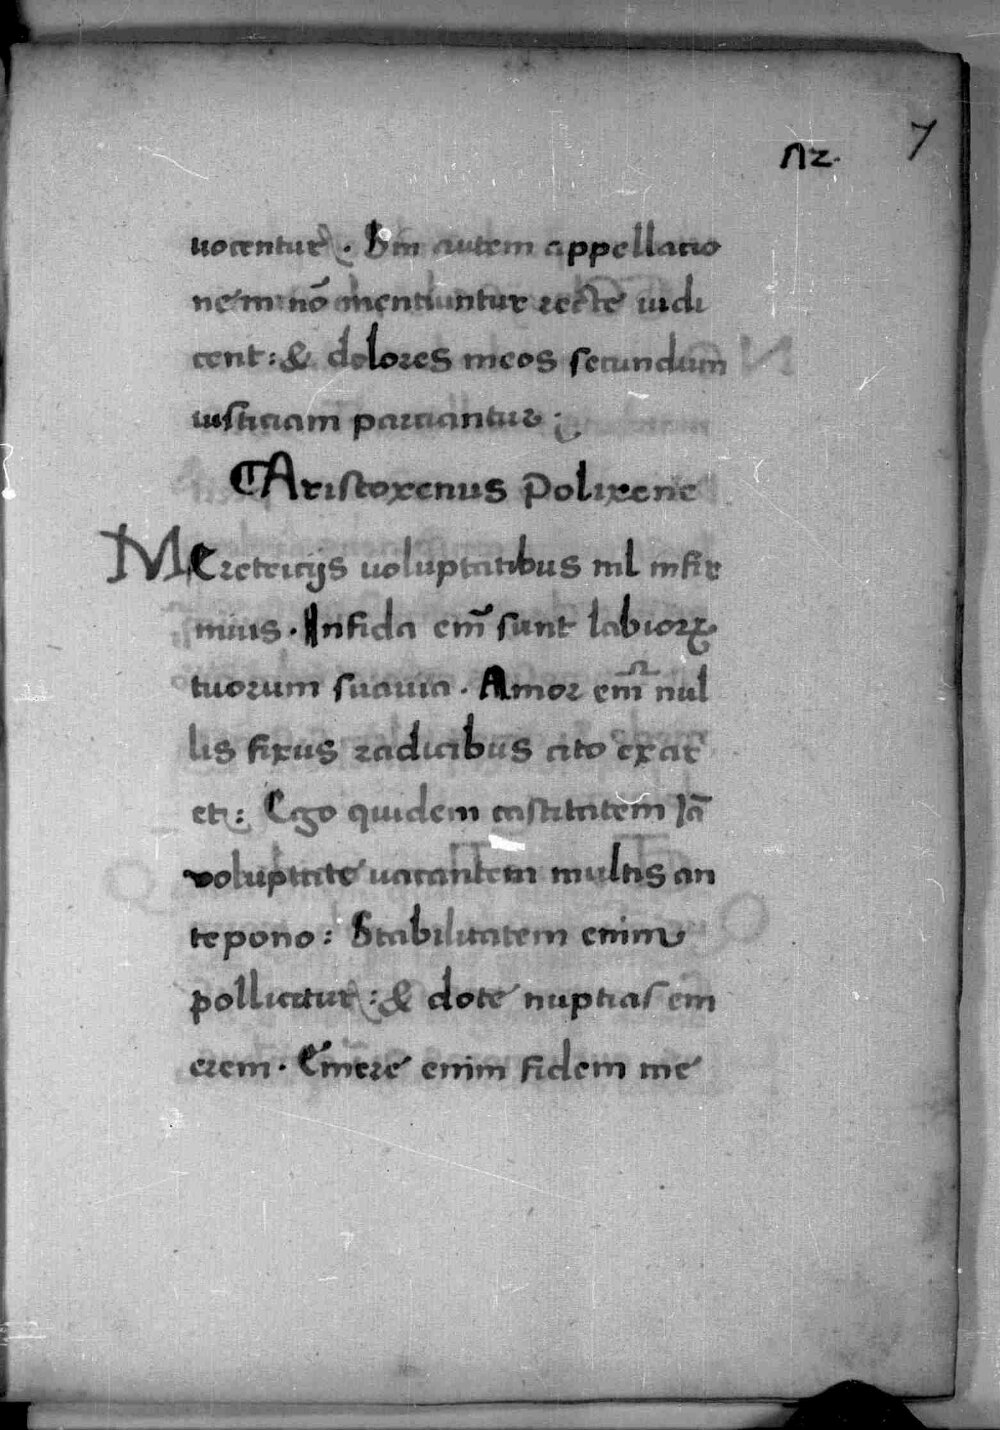 nz. 7
uocentur. Sin autem appellatio
nem nō mentiuntur recte iudi
cent: & dolores meos secundum
iusticiam parciantur;
Aristoxenus Polixene
MEretricijs uoluptatibus nil infir
mius. Infida em̄ sunt labioꝝ
tuorum suauia. Amor em̄ nul
lis fixus radicibus cito exar
et: Ego quidem castitatem Iā
uoluptate uacantem multis an
tepono: Stabilitatem enim
pollicetur: & dote nuptias em
erem. Emere enim fidem me